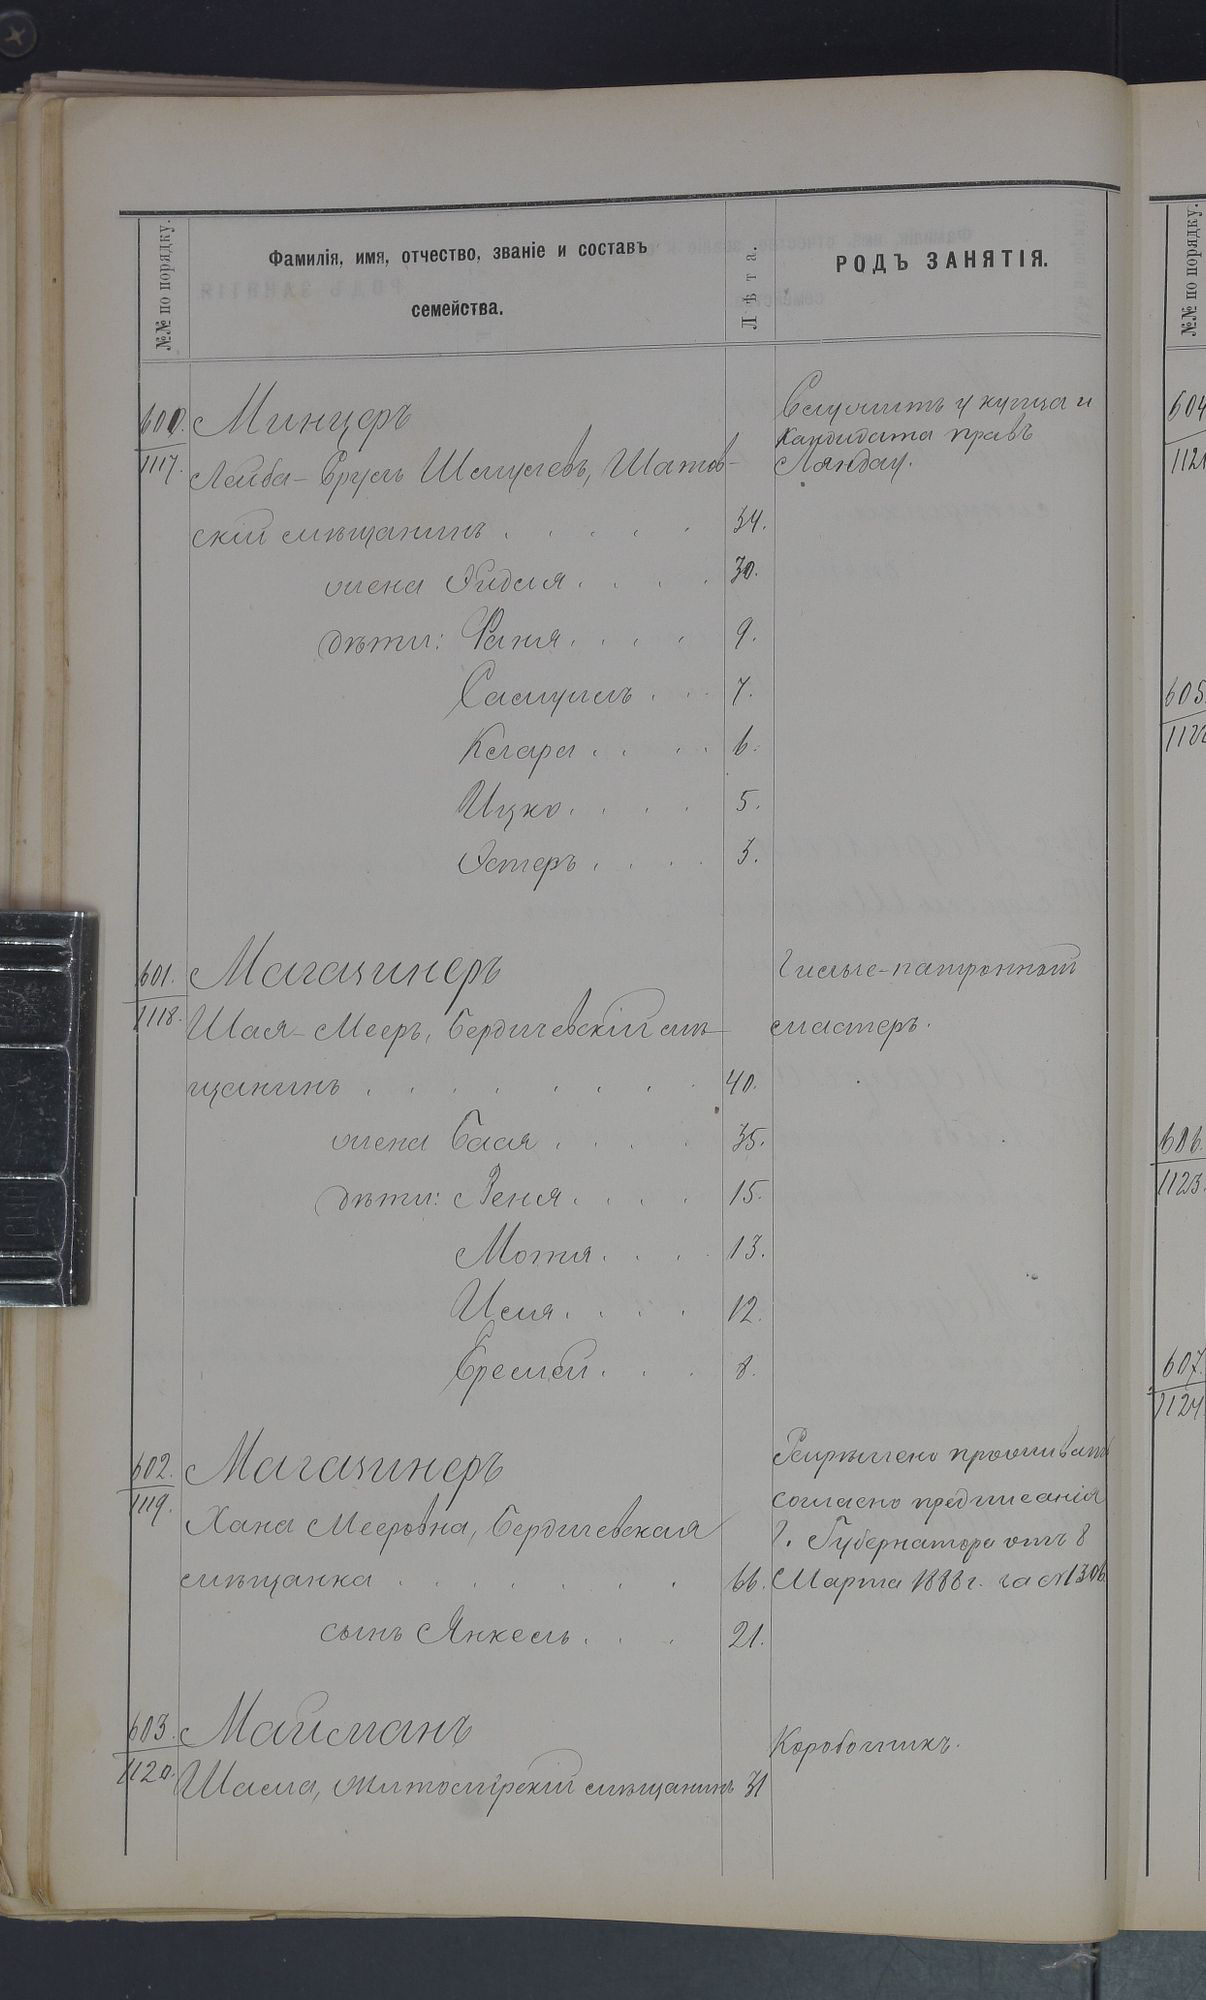 №№ по порядку.
Фамилія, имя, отчество, званіе и составъ
семейства.
Лѣта.
РОДЪ ЗАНЯТІЯ.
№№ по порядку.
600. Минцеръ
Служитъ у купца и
кандидата правъ
1117. Лейба-Сруль Шмулевъ, Шатов-
Ляндау.
скій мѣщанинъ . . . . . 34.
жена Эидля . . . . 30.
дѣти: Фаня . . . . 9.
Самуилъ . . . 7.
Клара . . . . 6.
Ицко . . . . 5.
Эстеръ . . . . 3.
601. Магазинеръ
Гильзе-патронный
1118. Шая-Мееръ, Бердичевскій мѣ-
мастеръ.
щанинъ . . . . . . . 40.
жена Бася . . . . 35.
дѣти: Зеня . . . . 15.
Мотя . . . . 13.
Исля . . . . 12.
8.
602. Магазинеръ
Разрѣшено проживать
согласно предписанія
1119. Хана Мееровна, Бердичевская
Г. Губернатора отъ 8
мѣщанка . . . . . . . 66.
Марта 1888 г. за № 1306.
сынъ Янкель . . . 21.
603. Майманъ
Коробочникъ.
1120. Шама, Житомірскій мѣщанинъ 31
604
1121
605.
1122
606.
1123.
607.
1124